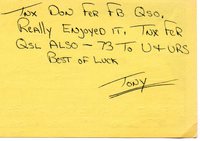 Tnx Don Fer FB QSO,
Really Enjoyed it, Tnx Fer
QSL Also - 73 To U & URS
Best of Luck
Tony